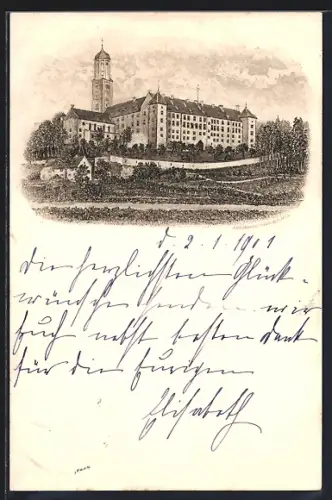 d. 2. 1. 1901
Die herzlichsten Glück-
wünsche senden wir
Euch nebst besten Dank
für die Eurigen
Elisabeth